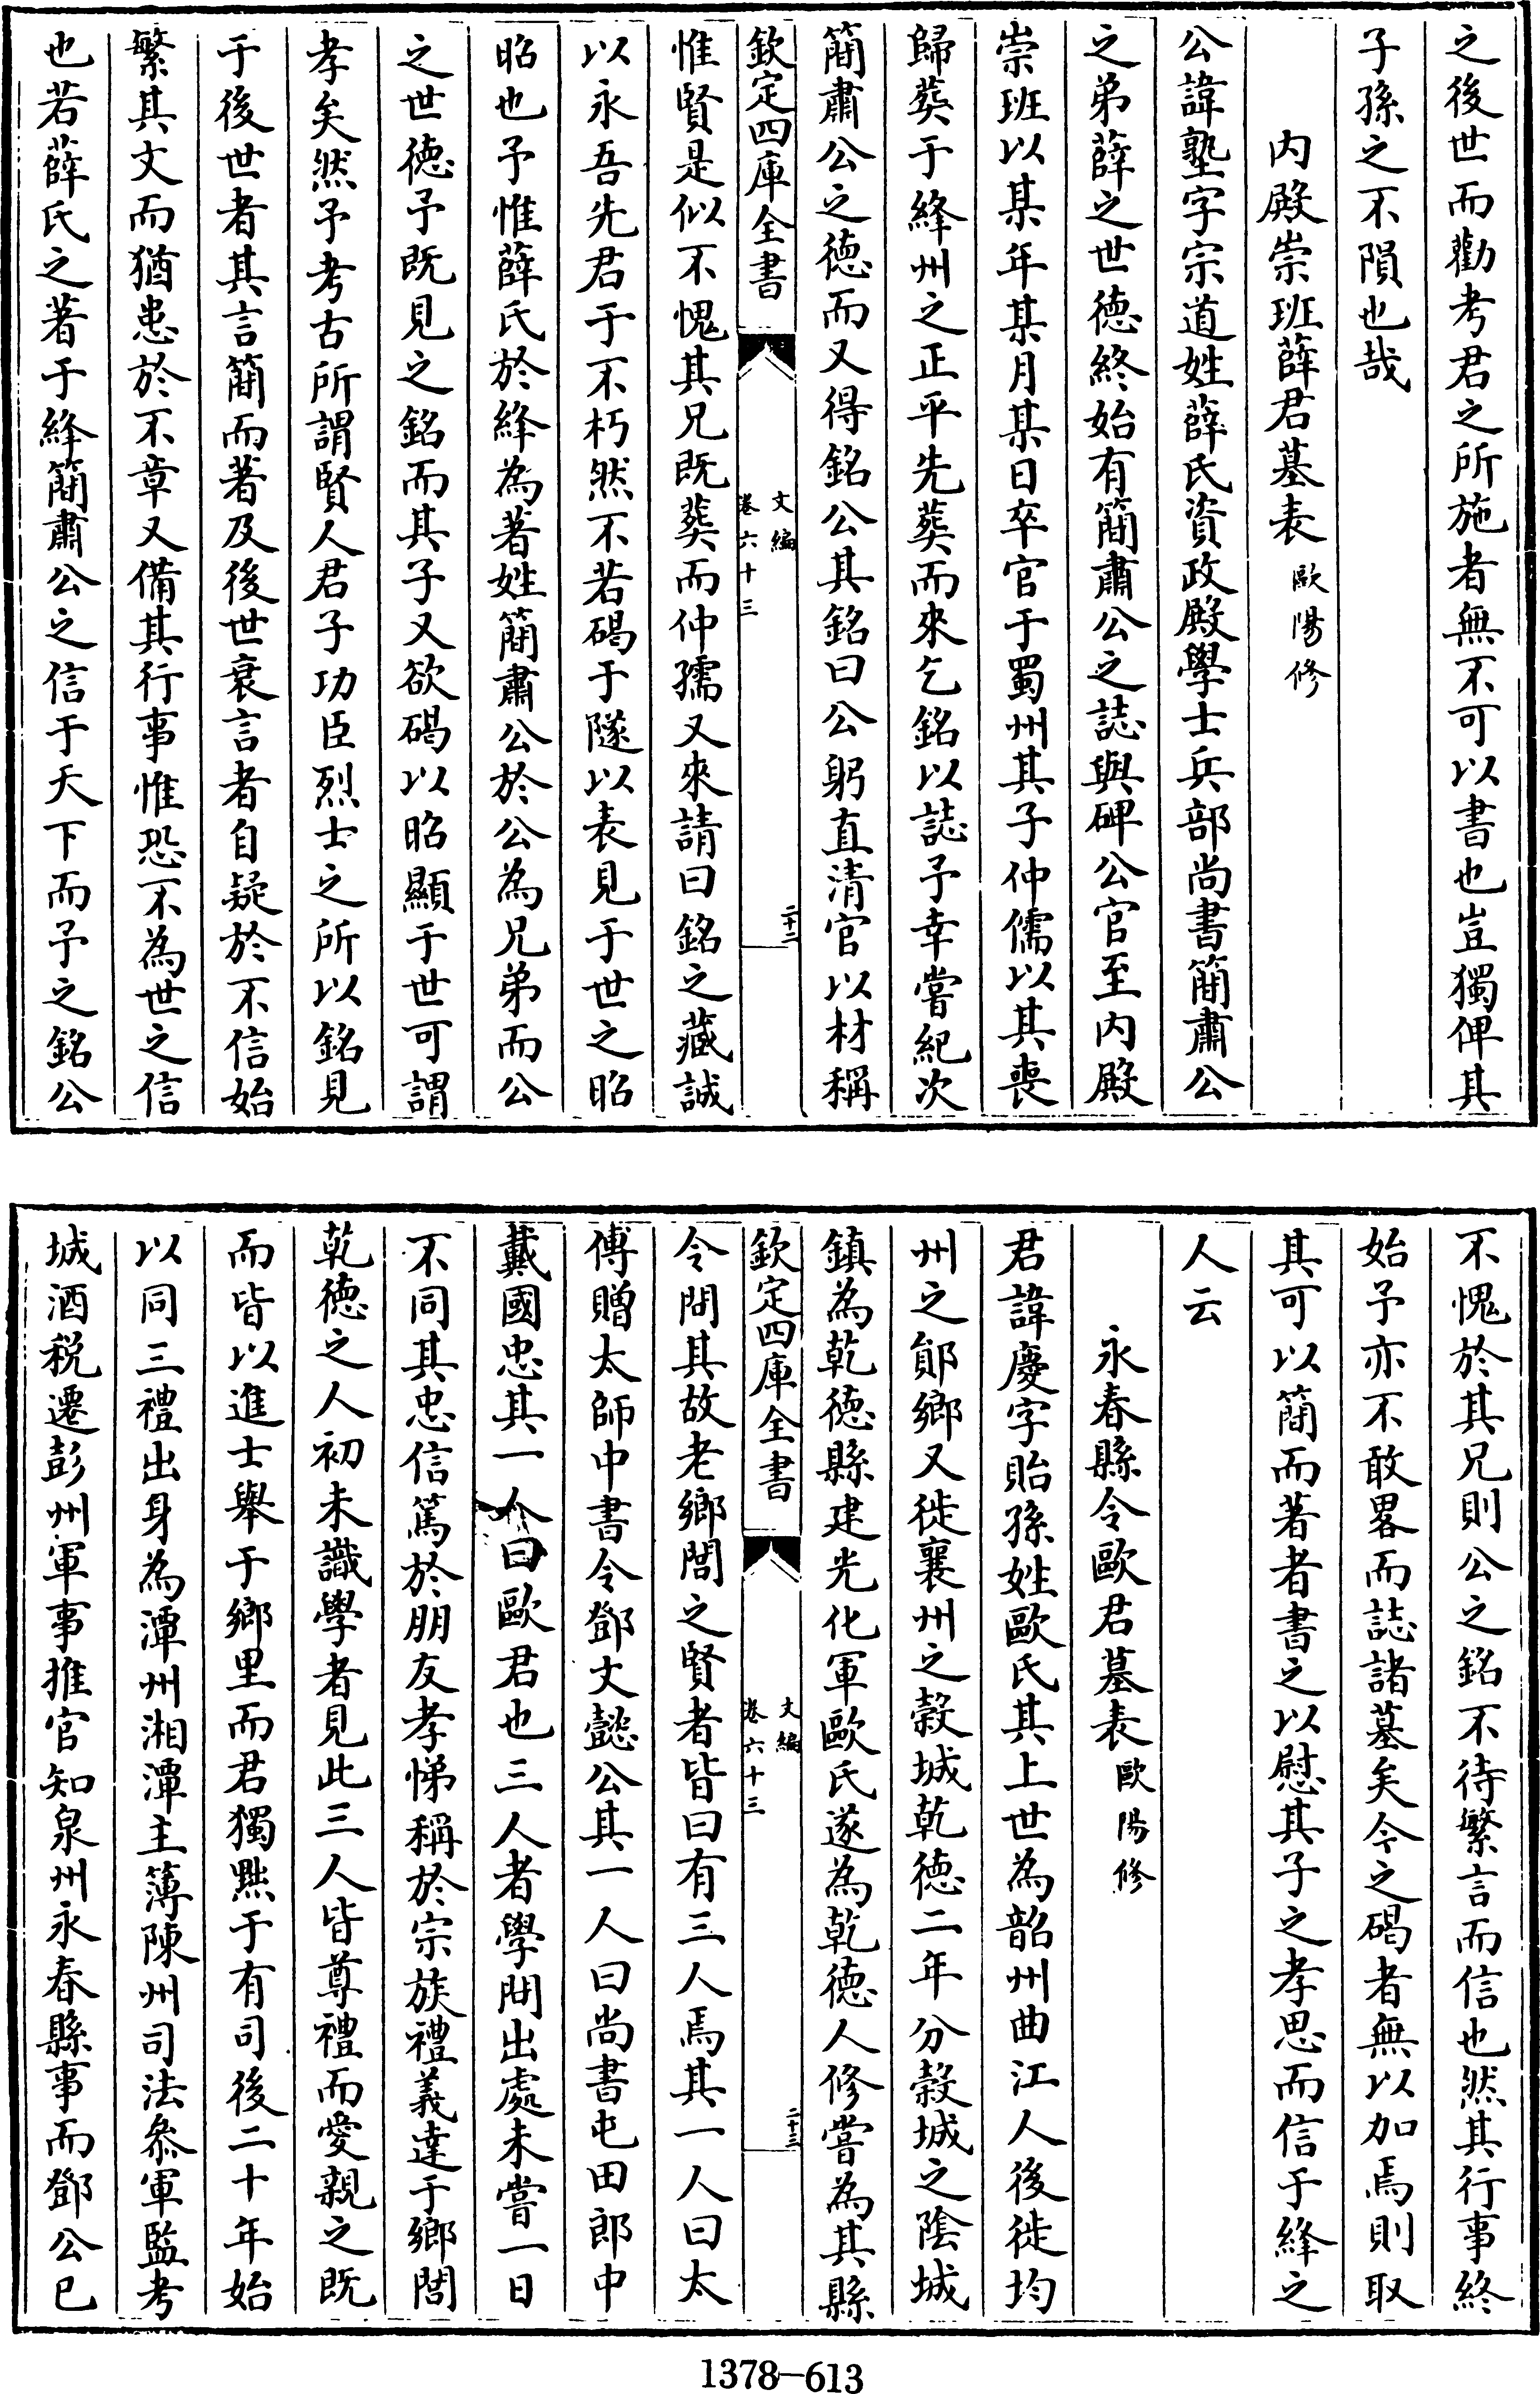 之後世而勸考君之所施者無不可以書也豈獨俾其
子孫之不隕也哉
内殿崇班薛君墓表 歐陽修
公諱塾字宗道姓薛氏資政殿學士兵部尚書簡肅公
之弟薛之世德終始有簡肅公之誌與碑公官至内殿
崇班以某年某月某日卒官于蜀州其子仲儒以其喪
歸葬于絳州之正平先葬而來乞銘以誌予幸嘗紀次
簡肅公之德而又得銘公其銘曰公躬直清官以材稱
欽定四庫全書 文編 卷六十三 二十二
惟賢是似不愧其兄既葬而仲孺又來請曰銘之藏誠
以永吾先君于不朽然不若碣于隧以表見于世之昭
昭也予惟薛氏於絳為著姓簡肅公於公為兄弟而公
之世德予既見之銘而其子又欲碣以昭顯于世可謂
孝矣然予考古所謂賢人君子功臣烈士之所以銘見
于後世者其言簡而著及後世衰言者自疑於不信始
繁其文而猶患於不章又備其行事惟恐不為世之信
也若薛氏之著于絳簡肅公之信于天下而予之銘公
不愧於其兄則公之銘不待繁言而信也然其行事終
始予亦不敢畧而誌諸墓矣今之碣者無以加焉則取
其可以簡而著者書之以慰其子之孝思而信于絳之
人云
永春縣令歐君墓表 歐陽修
君諱慶字貽孫姓歐氏其上世為韶州曲江人後徙均
州之鄖鄉又徙襄州之榖城乾德二年分榖城之陰城
鎮為乾德縣建光化軍歐氏遂為乾德人修嘗為其縣
欽定四庫全書 文編 卷六十三 二十三
令問其故老鄉閭之賢者皆曰有三人焉其一人曰太
傅贈太師中書令鄧文懿公其一人曰尚書屯田郎中
戴國忠其一人曰歐君也三人者學問出處未嘗一日
不同其忠信篤於朋友孝悌稱於宗族禮義達于鄉閭
乾德之人初未識學者見此三人皆尊禮而愛親之既
而皆以進士舉于鄉里而君獨黜于有司後二十年始
以同三禮出身為潭州湘潭主簿陳州司法參軍監考
城酒稅遷彭州軍事推官知泉州永春縣事而鄧公已
1378-613